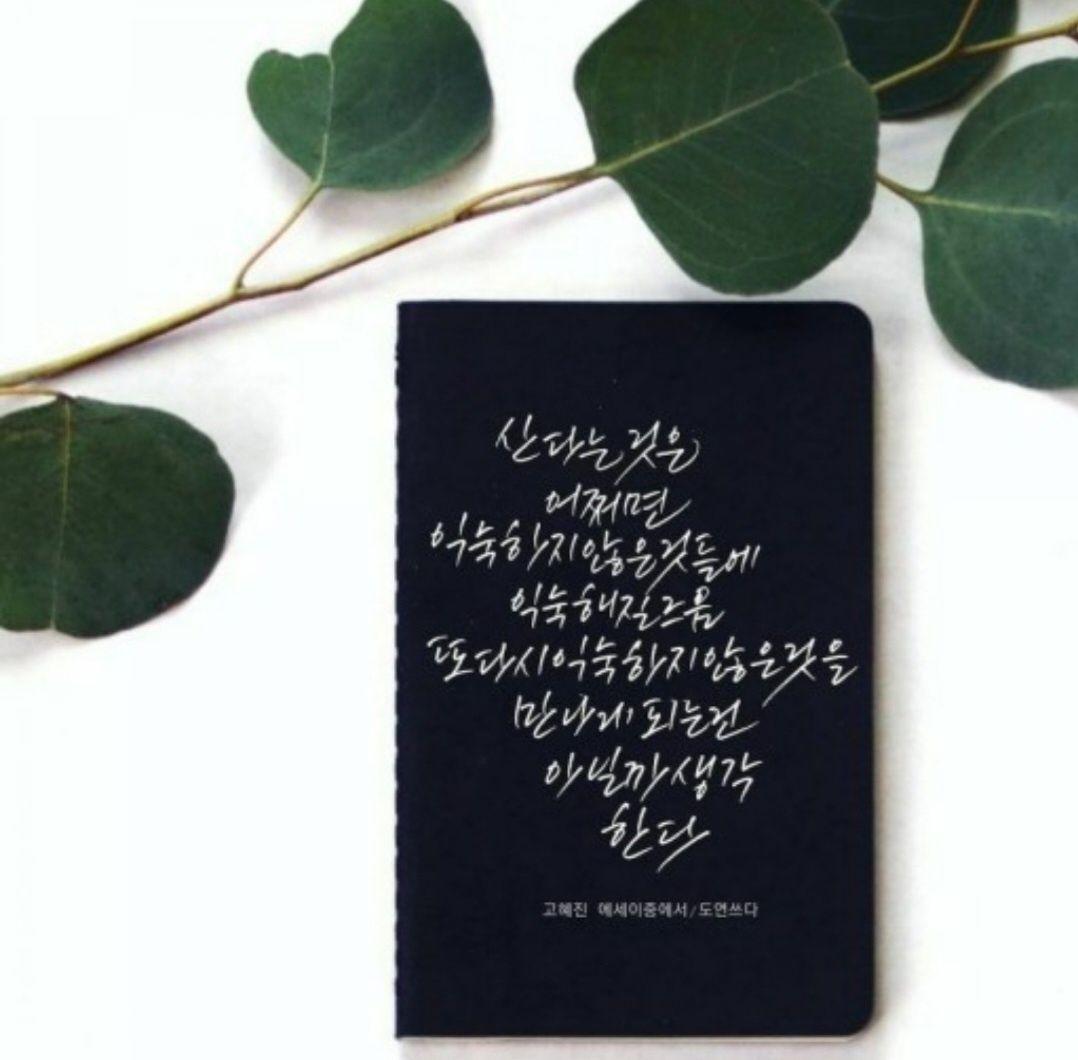 산다는 것은
어쩌면
익숙하지 않은 것들에
익숙해질 즈음
또다시 익숙하지 않은 것을
만나게 되는 건
아닐까 생각
한다
고혜진 에세이중에서/도연쓰다